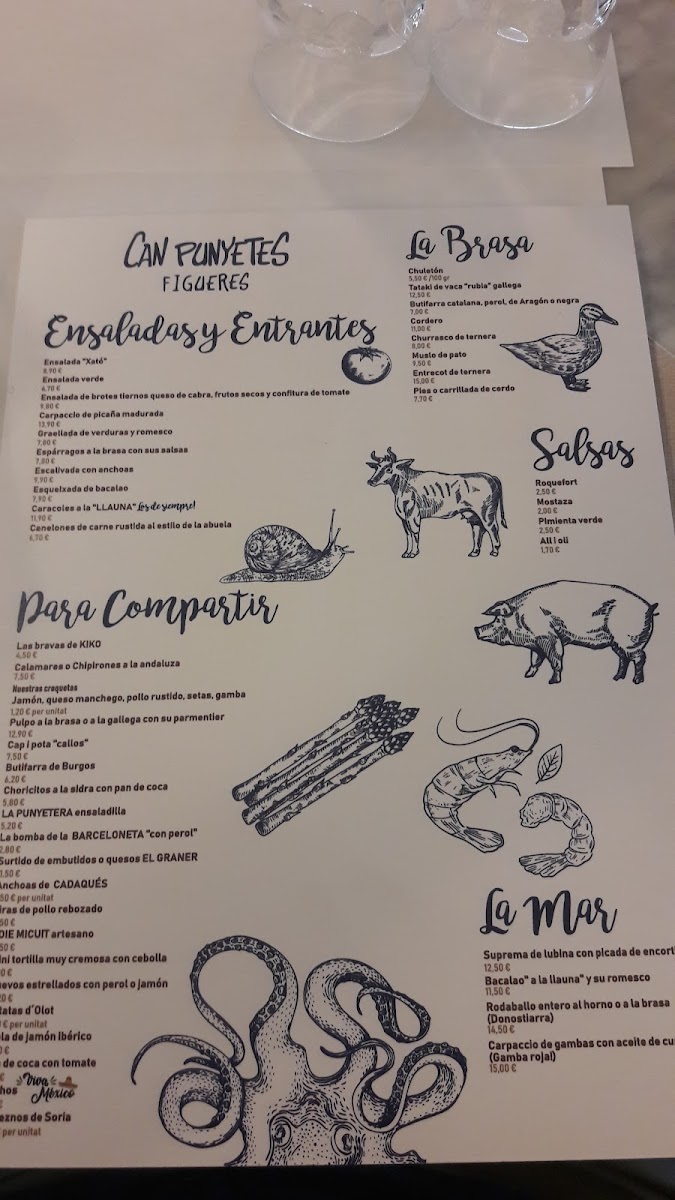 CAN PUNYETES
FIGUERES
Ensaladas y Entrantes
Ensalada "Xató"
8,90 €
Ensalada verde
6,70 €
Ensalada de brotes tiernos queso de cabra, frutos secos y confitura de tomate
9,80 €
Carpaccio de picaña madurada
13,90 €
Graellada de verduras y romesco
7,80 €
Espárragos a la brasa con sus salsas
7,80 €
Escalivada con anchoas
9,90 €
Esqueixada de bacalao
7,90 €
Caracoles a la "LLAUNA" Los de siempre!
11,90 €
Canelones de carne rustida al estilo de la abuela
6,70 €
Para Compartir
Las bravas de KIKO
4,50 €
Calamares o Chipirones a la andaluza
7,50 €
Nuestras croquetas
Jamón, queso manchego, pollo rustido, setas, gamba
1,20 € per unitat
Pulpo a la brasa o a la gallega con su parmentier
12,90 €
Cap i pota "callos"
7,50 €
Butifarra de Burgos
6,20 €
Choricitos a la sidra con pan de coca
5,80 €
LA PUNYETERA ensaladilla
5,20 €
La bomba de la BARCELONETA "con perol"
2,80 €
Surtido de embutidos o quesos EL GRANER
1,50 €
Anchoas de CADAQUÉS
50 € per unitat
iras de pollo rebozado
50 €
OIE MICUIT artesano
50 €
ini tortilla muy cremosa con cebolla
0 €
uevos estrellados con perol o jamón
0 €
tatas d'Olot
€ per unitat
la de jamón ibérico
€
de coca con tomate
€
hos Viva México
€
eznos de Soria
per unitat
La Brasa
Chuletón
5,50 €/100 gr
Tataki de vaca "rubia" gallega
12,50 €
Butifarra catalana, perol, de Aragón o negra
7,00 €
Cordero
11,00 €
Churrasco de ternera
8,00 €
Muslo de pato
9,50 €
Entrecot de ternera
15,00 €
Pies o carrillada de cerdo
7,70 €
Salsas
Roquefort
2,50 €
Mostaza
2,00 €
Pimienta verde
2,50 €
All i oli
1,70 €
La Mar
Suprema de lubina con picada de encort
12,50 €
Bacalao" a la llauna" y su romesco
11,50 €
Rodaballo entero al horno o a la brasa
(Donostiarra)
14,50 €
Carpaccio de gambas con aceite de cu
(Gamba roja!)
15,00 €